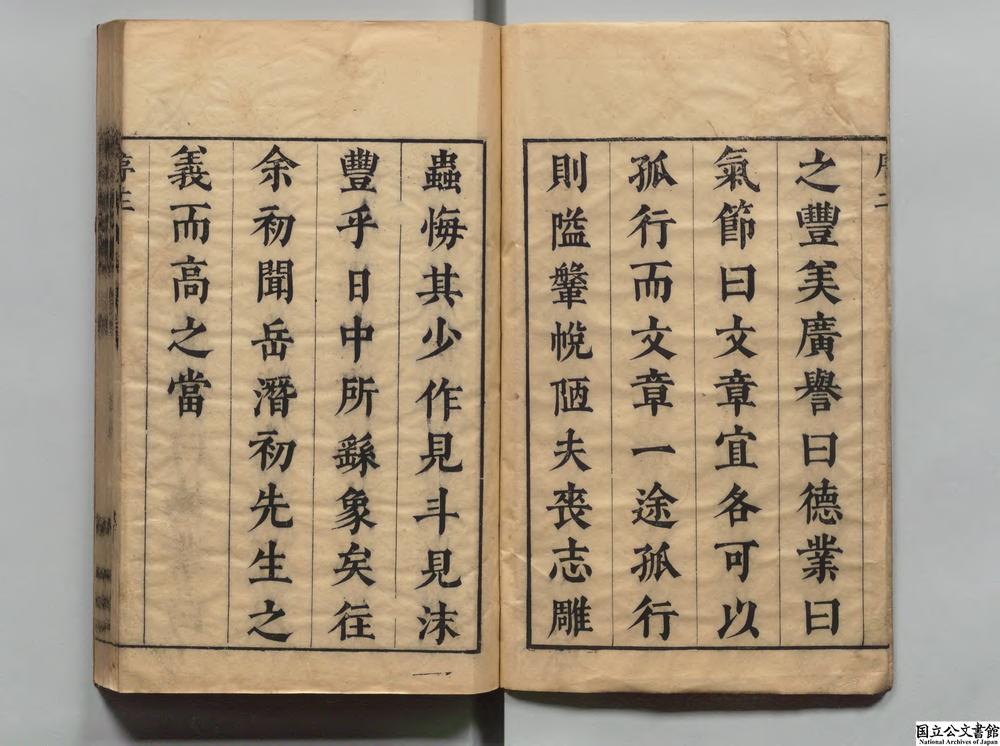 之豐美廣譽曰德業曰
氣節曰文章宜各可以
孤行而文章一途孤行
則隘鞶帨陋夫喪志雕
蟲悔其少作見斗見沫
豐乎日中所繇象矣往
余初聞岳潛初先生之
義而高之當
国立公文書館
National Archives of Japan